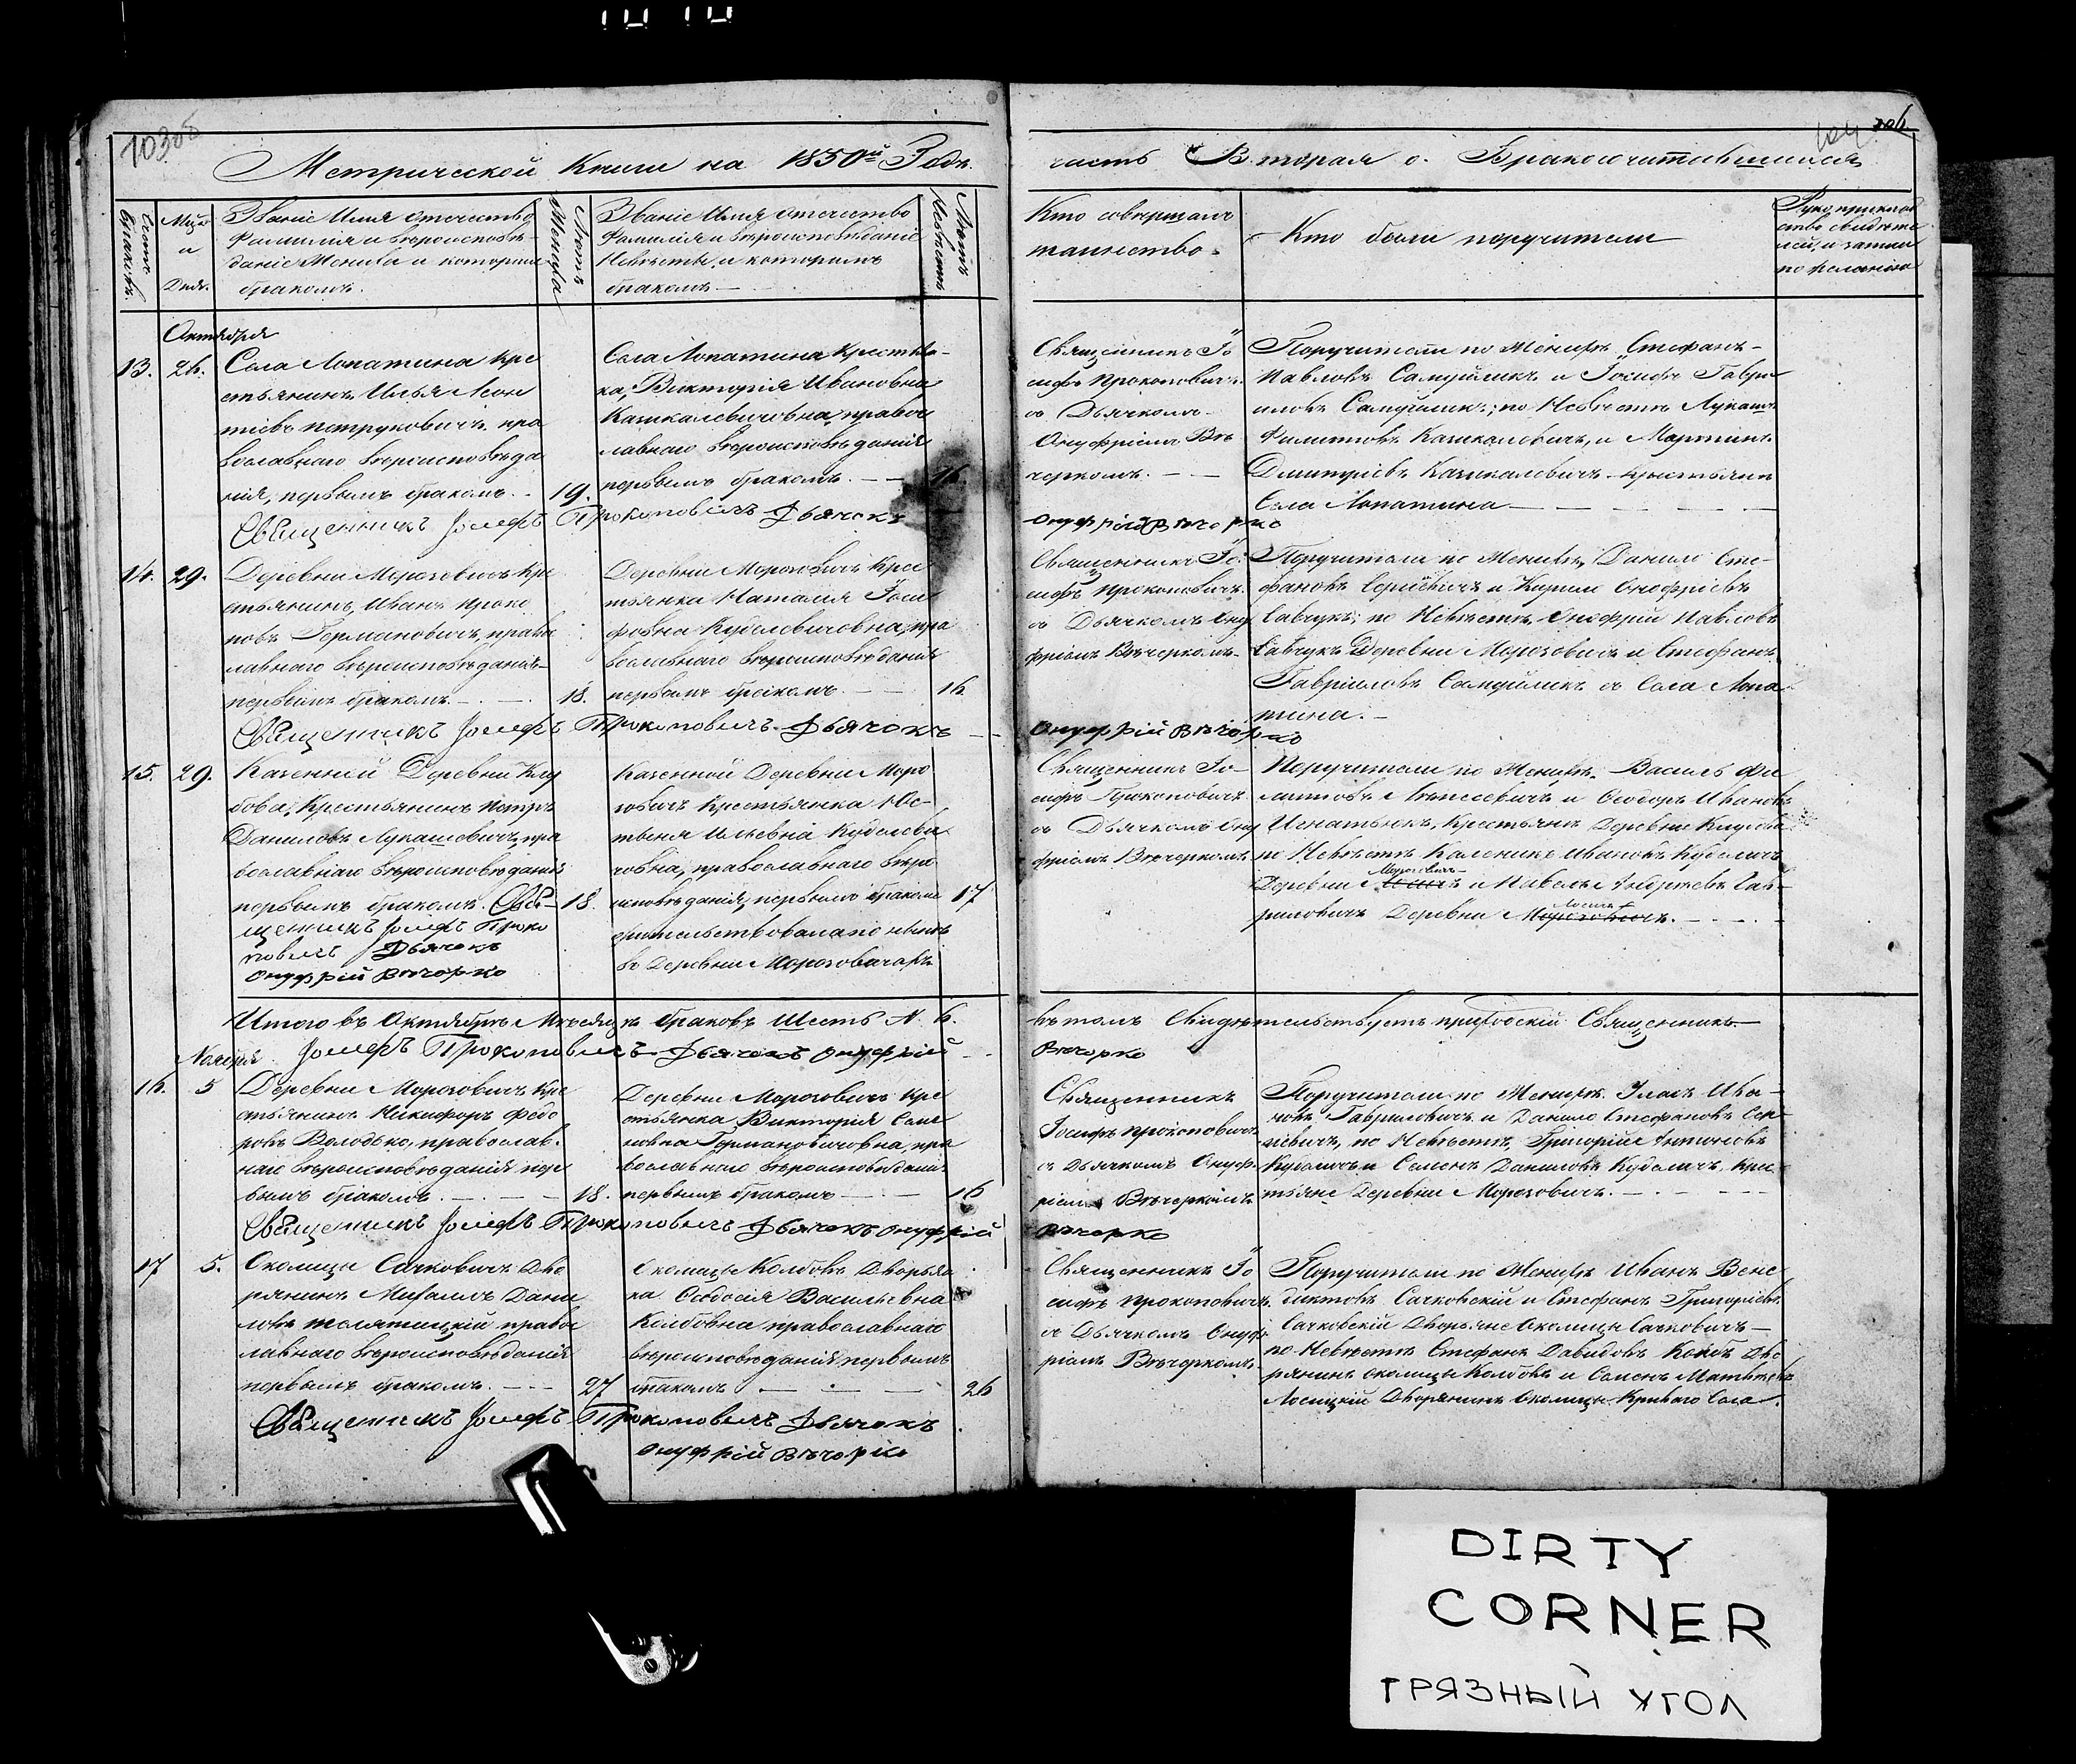 103об
104 106.
Метрической Книги на 1850й Годъ.
часть Вторая о Бракосочитавшихся
Счетъ браковъ.
Мцъ и Дни.
Званіе Имя отечество
Фамилія и вѣроисповѣ-
даніе Жениха и которымъ
бракомъ.
Лѣта Жениха
Званіе Имя отечество
Фамилія и вѣроисповѣданіе
Невѣсты, и которымъ
бракомъ
Лѣта Невѣсты
Кто совершалъ
таинство.
Кто были поручители
Октября
13. 26.
Села Лопатина кре
стьянинъ Илья Леон
тіевъ петруковичъ пра
вославнаго вѣроисповѣда
нія, первымъ бракомъ. 19.
Села Лопатина Крестьян-
ка, Викторія Ивановна
правос
лавнаго вѣроисповѣданія
первымъ бракомъ. 16.
Священникъ Іо
сифъ Прокоповичъ
съ Дьячкомъ
Онуфріемъ Вѣ
черкомъ.
Поручители по Женихѣ Стефанъ
Павловъ Самуйликъ и Іосифъ Гаври
иловъ Самуйликъ; по Невѣстѣ Лукашъ
Филиповъ и Мартинъ
Дмитріевъ крестьяни
Села Лопатина
Священникъ Іосифъ Прокоповичъ Дьячокъ
Онуфрій Вѣчорко
14. 29.
Деревни Морозовичъ Кре
стьянинъ Иванъ Проко
повъ Германовичъ, право
славнаго вѣроисповѣданія
первымъ бракомъ. 18.
Деревни Морозовичъ Крес
тьянка Наталія Іоси
фовна Куделевичовна, пра
вославнаго вѣроисповѣданія
первымъ бракомъ. 16
Священникъ Іо
сифъ Прокоповичъ
съ Дьячкомъ Ону
фріемъ Вѣчеркомъ
Поручители по Женихѣ Данило Сте-
фановъ Сергіевичъ и Кирилъ Онофріевъ
Савчукъ; по Невѣстѣ, Онофрій Павловъ
Савчукъ Деревни Морозовичъ и Стефанъ
Гавріиловъ Самуйликъ съ Села Лопа
тина.
Священникъ Іосифъ Прокоповичъ. Дьячокъ
Онуфрій Вѣчорко
15. 29.
Казенной Деревни
Крестьянинъ Петръ
Даниловъ Лукашевичъ, пра
вославнаго вѣроисповѣданія
первымъ бракомъ. Свя- 18.
щенникъ Іосифъ Проко
повичъ Дьячокъ
Онуфрій Вѣчорко
Казенной Деревни Моро
зовичъ Крестьянка Юс-
тына Ильевна Куделеви
човна, православнаго вѣро
исповѣданія, первымъ бракомъ 17
въ Деревни Морозовичахъ
Священникъ Іо-
сифъ Прокоповичъ
съ Дьячкомъ Ону
фріемъ Вѣчеркомъ
Поручители по Женихѣ Василь Фи
липовъ и Феодоръ Ивановъ
Игнатюкъ, Крестьяни Деревни
по Невѣстѣ Каленикъ Ивановъ Куделичъ
Деревни Морозовичъ и Павелъ Андреевъ Гав-
риловичъ Деревни Морозовичъ.
Итого въ Октябрѣ Мѣсяцѣ браковъ Шесть N. 6.
въ томъ Свидѣтельствуетъ приходскій Священникъ
Іосифъ Прокоповичъ Дьячокъ Онуфрій
Вѣчорко
Ноября
16. 5
Деревни Морозовичъ Кре
стьянинъ Никифоръ Федо
ровъ Володько, православ
наго вѣроисповѣданія пер
вымъ бракомъ. 18.
Деревни Морозовичъ Кре
стьянка Викторія Семе
новна Германовичовна, пра
вославнаго вѣроисповѣданія
первымъ бракомъ 16
Священникъ
Іосифъ Прокоповичъ
съ Дьячкомъ Онуф-
ріемъ Вѣчеркомъ
Поручители по Женихѣ Игнатъ Ива-
новъ Гавриловичъ и Данило Стефановъ Сер-
гіевичъ, по Невѣстѣ, Григорій Антоновъ
Куделичъ и Семенъ Даниловъ Куделичъ, Кре
стьяне Деревни Морозовичъ.
Священникъ Іосифъ Прокоповичъ Дьячокъ Онуфрій
Вѣчорко
17 5.
Околицы Сачковичъ Дво
рянинъ Михаилъ Дани
ловъ Телятицкій правос
лавнаго вѣроисповѣданія
первымъ бракомъ. 27
Околицы Колбовъ Дворян
ка Феодосія Васильевна
Колбовна православнаго
вѣроисповѣданія первымъ
бракомъ 26
Священникъ Іо
сифъ Прокоповичъ
съ Дьячкомъ Онуф
ріемъ Вѣчеркомъ
Поручители по Женихѣ Иванъ Вене
диктовъ Сачковскій и Стефанъ Григоріевъ
Сачковскій Дворяне Околицы Сачковичъ
по Невѣстѣ Стефанъ Давидовъ Колбъ Дво
рянинъ околицы Колбовъ и Семенъ Матвѣевъ
Лосицкій Дворянинъ Околицы Криваго Села.
Священникъ Іосифъ Прокоповичъ Дьячокъ
Онуфрій Вѣчорко
DIRTY
CORNER
ГРЯЗНЫЙ УГОЛ